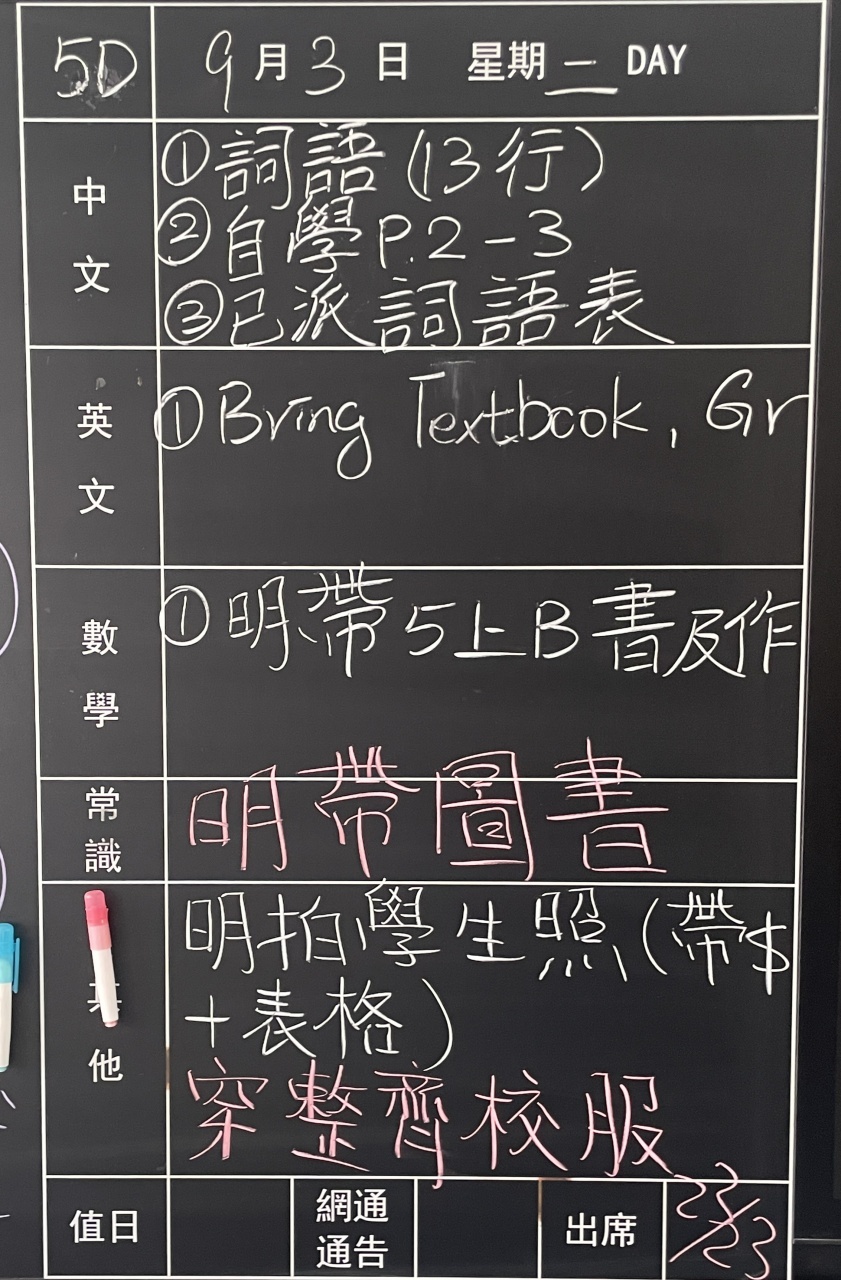 5D 9月3日 星期二 DAY
中文
①詞語(13行)
②自學P.2-3
③已派詞語表
英文
①Bring Textbook, Gr
數學
①明帶5上B書及作
常識
明帶圖書
其他
明拍學生照(帶$
+表格)
穿整齊校服
值日 網通通告 出席 23/23